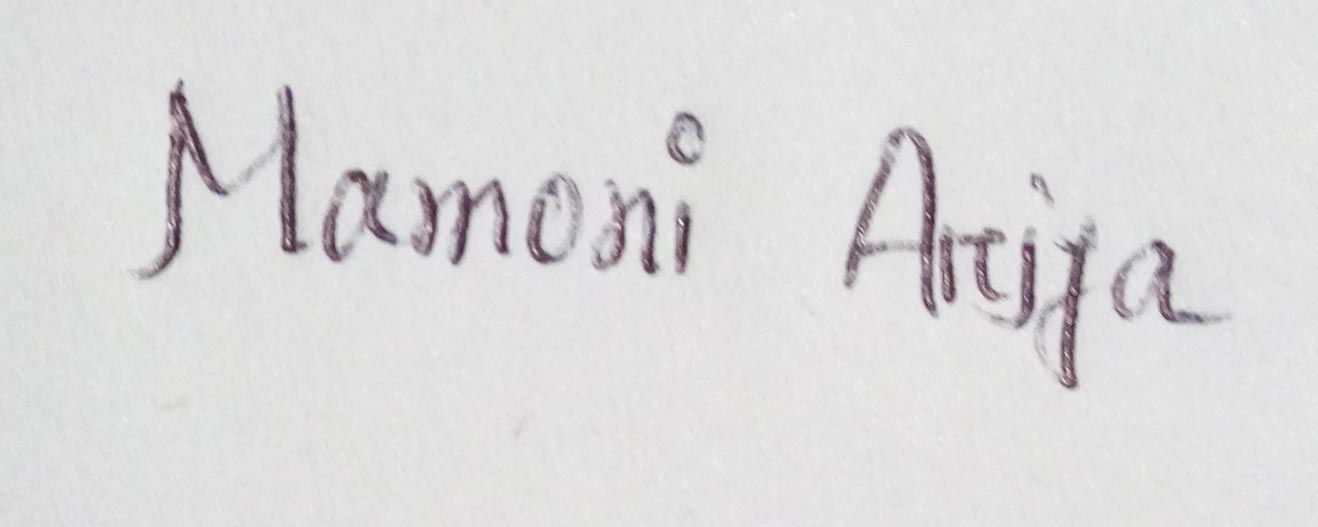 Mamoni Arjya